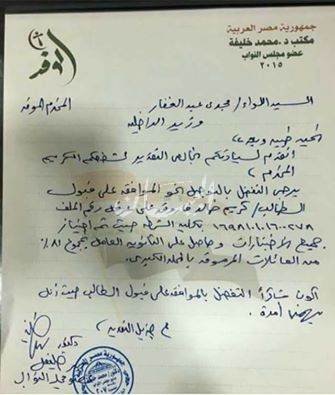 جمهورية مصر العربية
مكتب د. محمد خليفة
عضو مجلس النواب
٢٠١٥
الوفد
السيد اللواء / مجدى عبد الغفار المحترم الموقر
وزير الداخلية
تحية طيبة وبعد ،،
أتقدم لسيادتكم بخالص التقدير لشخصكم الكريم
المحترم ،
يرجى التفضل بالتفضل نحو الموافقة على قبول
الطالب / كريم خالد فاروق على رقم الملف
بكلية الشرطة حيث تم اجتياز
جميع الاختبارات وحاصل على الثانوية العامة بمجموع ٨١٪
من العائلات المرموقة بالمحلة الكبرى.
أكون شاكراً التفضل بالموافقة على قبول الطالب حيث أنه
مع جزيل التقدير ،
دكتور
عضو مجلس النواب